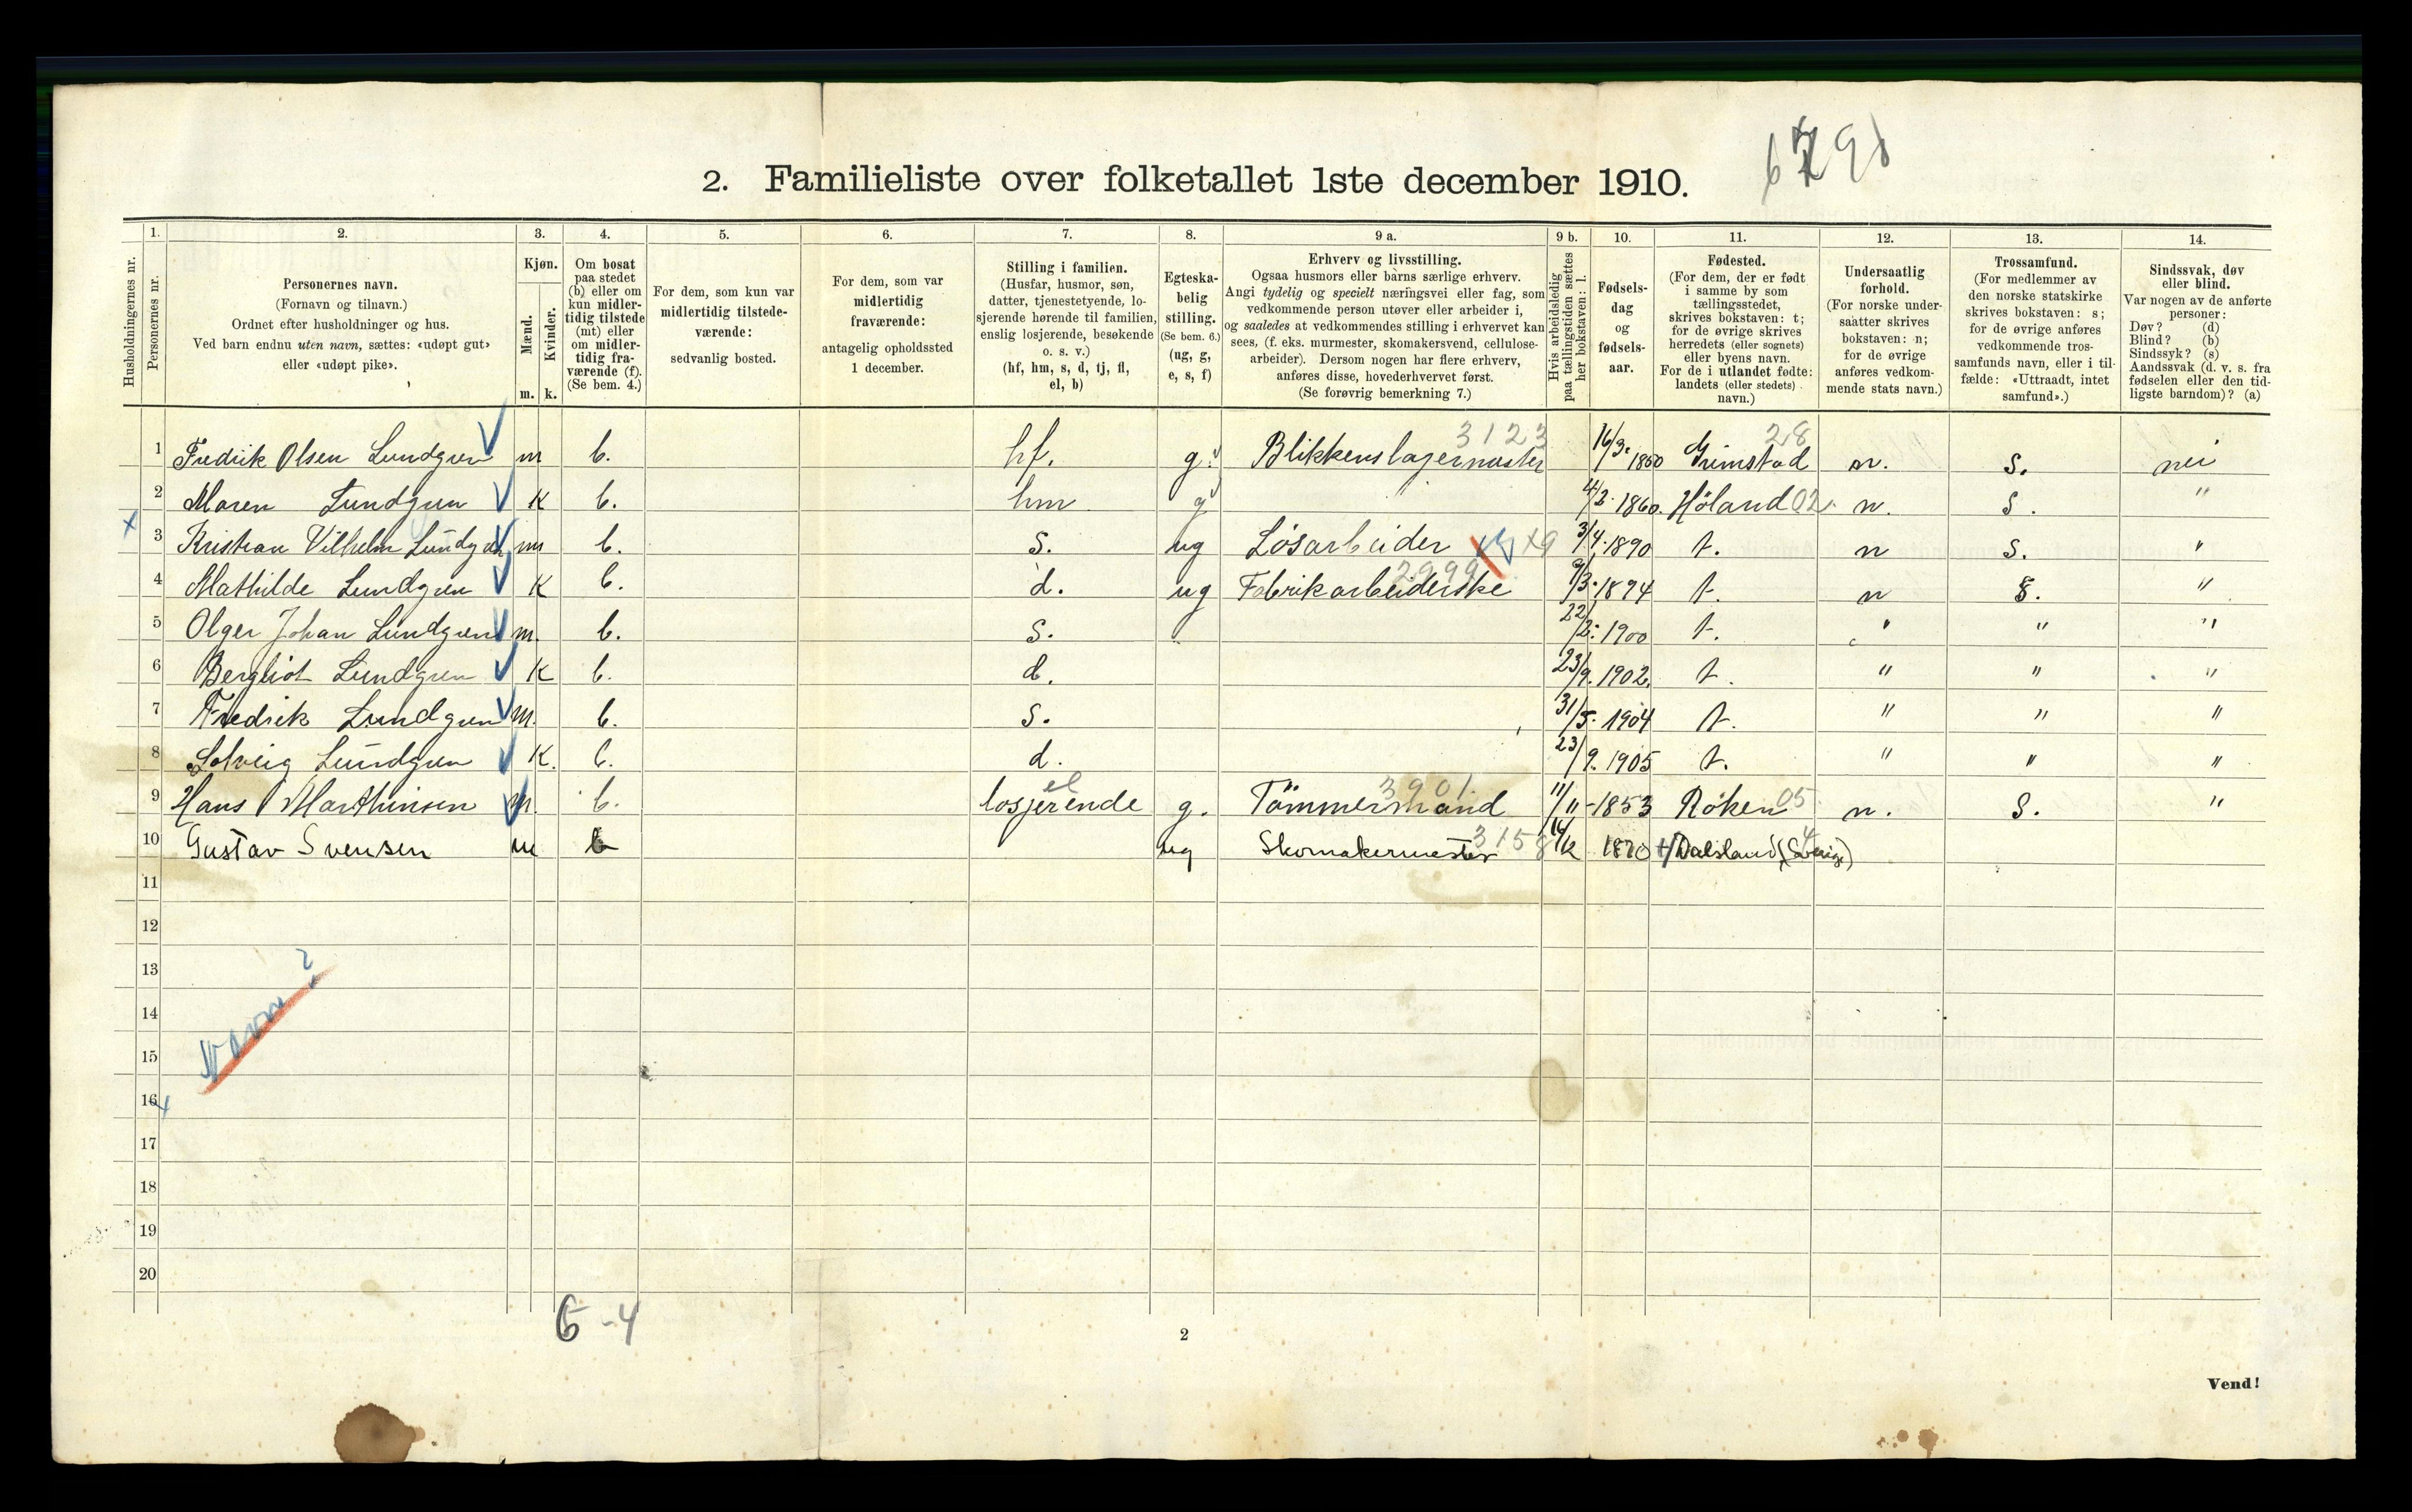 2. Familieliste over folketallet 1ste december 1910.
Husholdningernes nr.
1. Personernes nr.
2. Personernes navn.
(Fornavn og tilnavn.)
Ordnet efter husholdninger og hus.
Ved barn endnu uten navn, sættes: «udøpt gut»
eller «udøpt pike».
3. Kjøn.
Mænd. Kvinder.
m. k.
4. Om bosat
paa stedet
(b) eller om
kun midler-
tidig tilstede
(mt) eller
om midler-
tidig fra-
værende (f).
(Se bem. 4.)
5. For dem, som kun var
midlertidig tilstede-
værende:
sedvanlig bosted.
6. For dem, som var
midlertidig
fraværende:
antagelig opholdssted
1 december.
7. Stilling i familien.
(Husfar, husmor, søn,
datter, tjenestetyende, lo-
sjerende hørende til familien,
enslig losjerende, besøkende
o. s. v.)
(hf, hm, s, d, tj, fl,
el, b)
8. Egteska-
belig
stilling.
(Se bem. 6.)
(ug, g,
e, s, f)
9 a. Erhverv og livsstilling.
Ogsaa husmors eller barns særlige erhverv.
Angi tydelig og specielt næringsvei eller fag, som
vedkommende person utøver eller arbeider i,
og saaledes at vedkommendes stilling i erhvervet kan
sees, (f. eks. murmester, skomakersvend, cellulose-
arbeider). Dersom nogen har flere erhverv,
anføres disse, hovederhvervet først.
(Se forøvrig bemerkning 7.)
9 b. Hvis arbeidsledig
paa tællingstiden sættes
her bokstaven: l.
10. Fødsels-
dag
og
fødsels-
aar.
11. Fødested.
(For dem, der er født
i samme by som
tællingsstedet,
skrives bokstaven: t;
for de øvrige skrives
herredets (eller sognets)
eller byens navn.
For de i utlandet fødte:
landets (eller stedets)
navn.)
12. Undersaatlig
forhold.
(For norske under-
saatter skrives
bokstaven: n;
for de øvrige
anføres vedkom-
mende stats navn.)
13. Trossamfund.
(For medlemmer av
den norske statskirke
skrives bokstaven: s;
for de øvrige anføres
vedkommende tros-
samfunds navn, eller i til-
fælde: «Uttraadt, intet
samfund».)
14. Sindssvak, døv
eller blind.
Var nogen av de anførte
personer:
Døv? (d)
Blind? (b)
Sindssyk? (s)
Aandssvak (d. v. s. fra
fødselen eller den tid-
ligste barndom)? (a)
1 Fredrik Olsen Lundgren m b. hf. g. Blikkenslagermester 3123 16/3. 1860 Grimstad 28 n. s. nei
2 Maren Lundgren K b. hm g 4/2. 1860. Høland 02 n. s. "
3 Kristian Vilhelm Lundgren m b. s. ug Løsarbeider 3/4. 1890 t. n s. "
4 Mathilde Lundgren K b. d. ug Fabrikarbeiderske 2999 9/3. 1894 t. n s. "
5 Olger Johan Lundgren m. b. s. 22/2. 1900 t. " " "
6 Bergliot Lundgren K b. d. 23/9. 1902. t. " " "
7 Fredrik Lundgren m. b. s. 31/5. 1904 t. " " "
8 Solveig Lundgren K. b. d. 23/9. 1905 t. " " "
9 Hans Marthinsen m. b. losjerende el g. Tömmermand 3901. 11/11-1853 Røken 05 n. s. "
10 Gustav Svensen m b ug Skomakermester 3158 1870 Dalsland (Sverige)
11
12
13
14
15
16
17
18
19
20
Navn?
6-4
2
Vend!